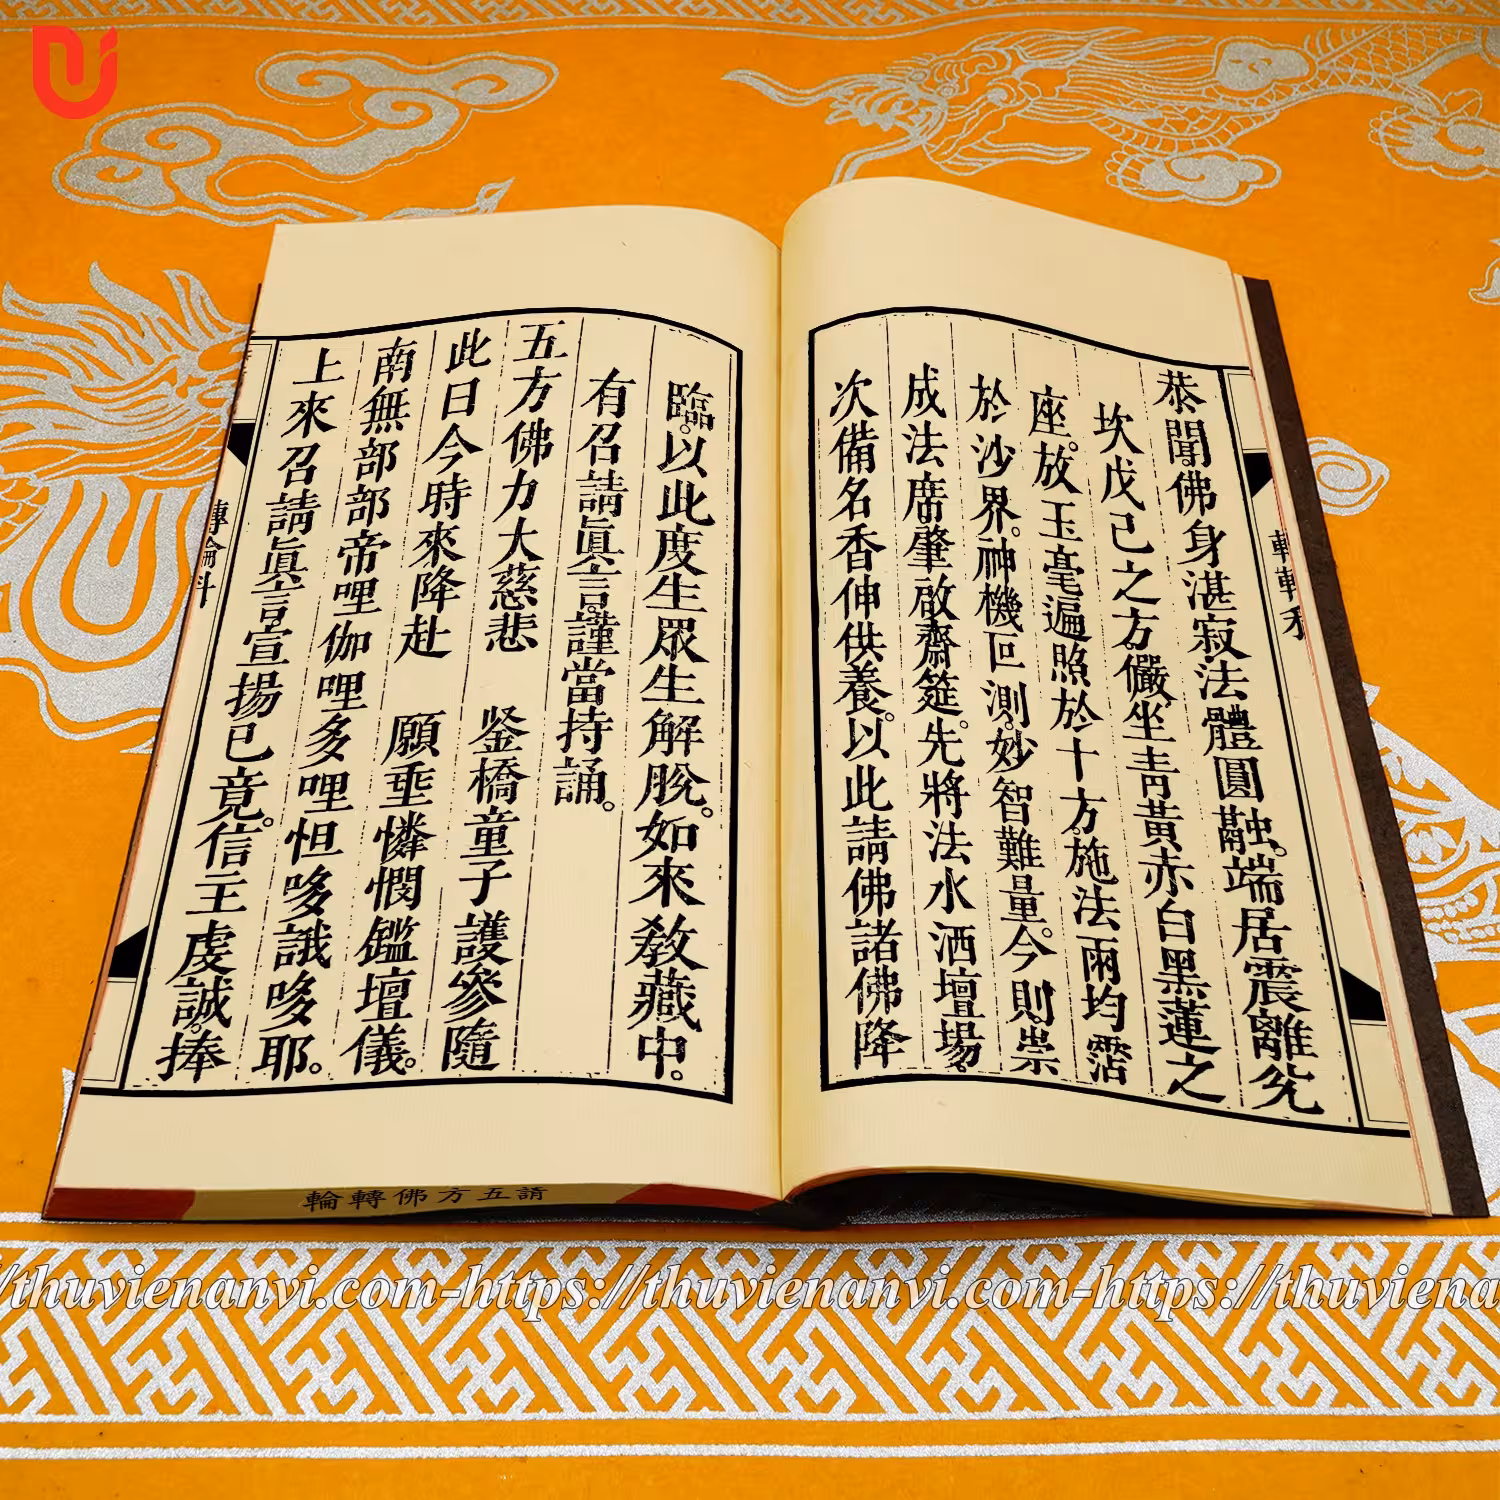 恭聞。佛身湛寂。法體圓融。端居震離兊
坎戊己之方。儼坐青黃赤白黑蓮之
座。放玉毫遍照於十方。施法雨均霑
於沙界。神機叵測。妙智難量。今則崇
成法席。肇啟齋筵。先將法水洒壇場。
次備名香伸供養。以此請佛諸佛降
臨。以此度生眾生解脫。如來教藏中。
有召請眞言。謹當持誦。
五方佛力大慈悲 鉴橋童子護參隨
此日今時來降赴 願垂憐憫鑑壇儀。
南無部部帝哩伽哩多哩怛哆誐哆耶。
上來召請眞言宣揚已竟。信主虔誠。捧
轉輪科
輪轉佛方五請
//thuvienanvi.com-https://thuvienanvi.com-https://thuviena